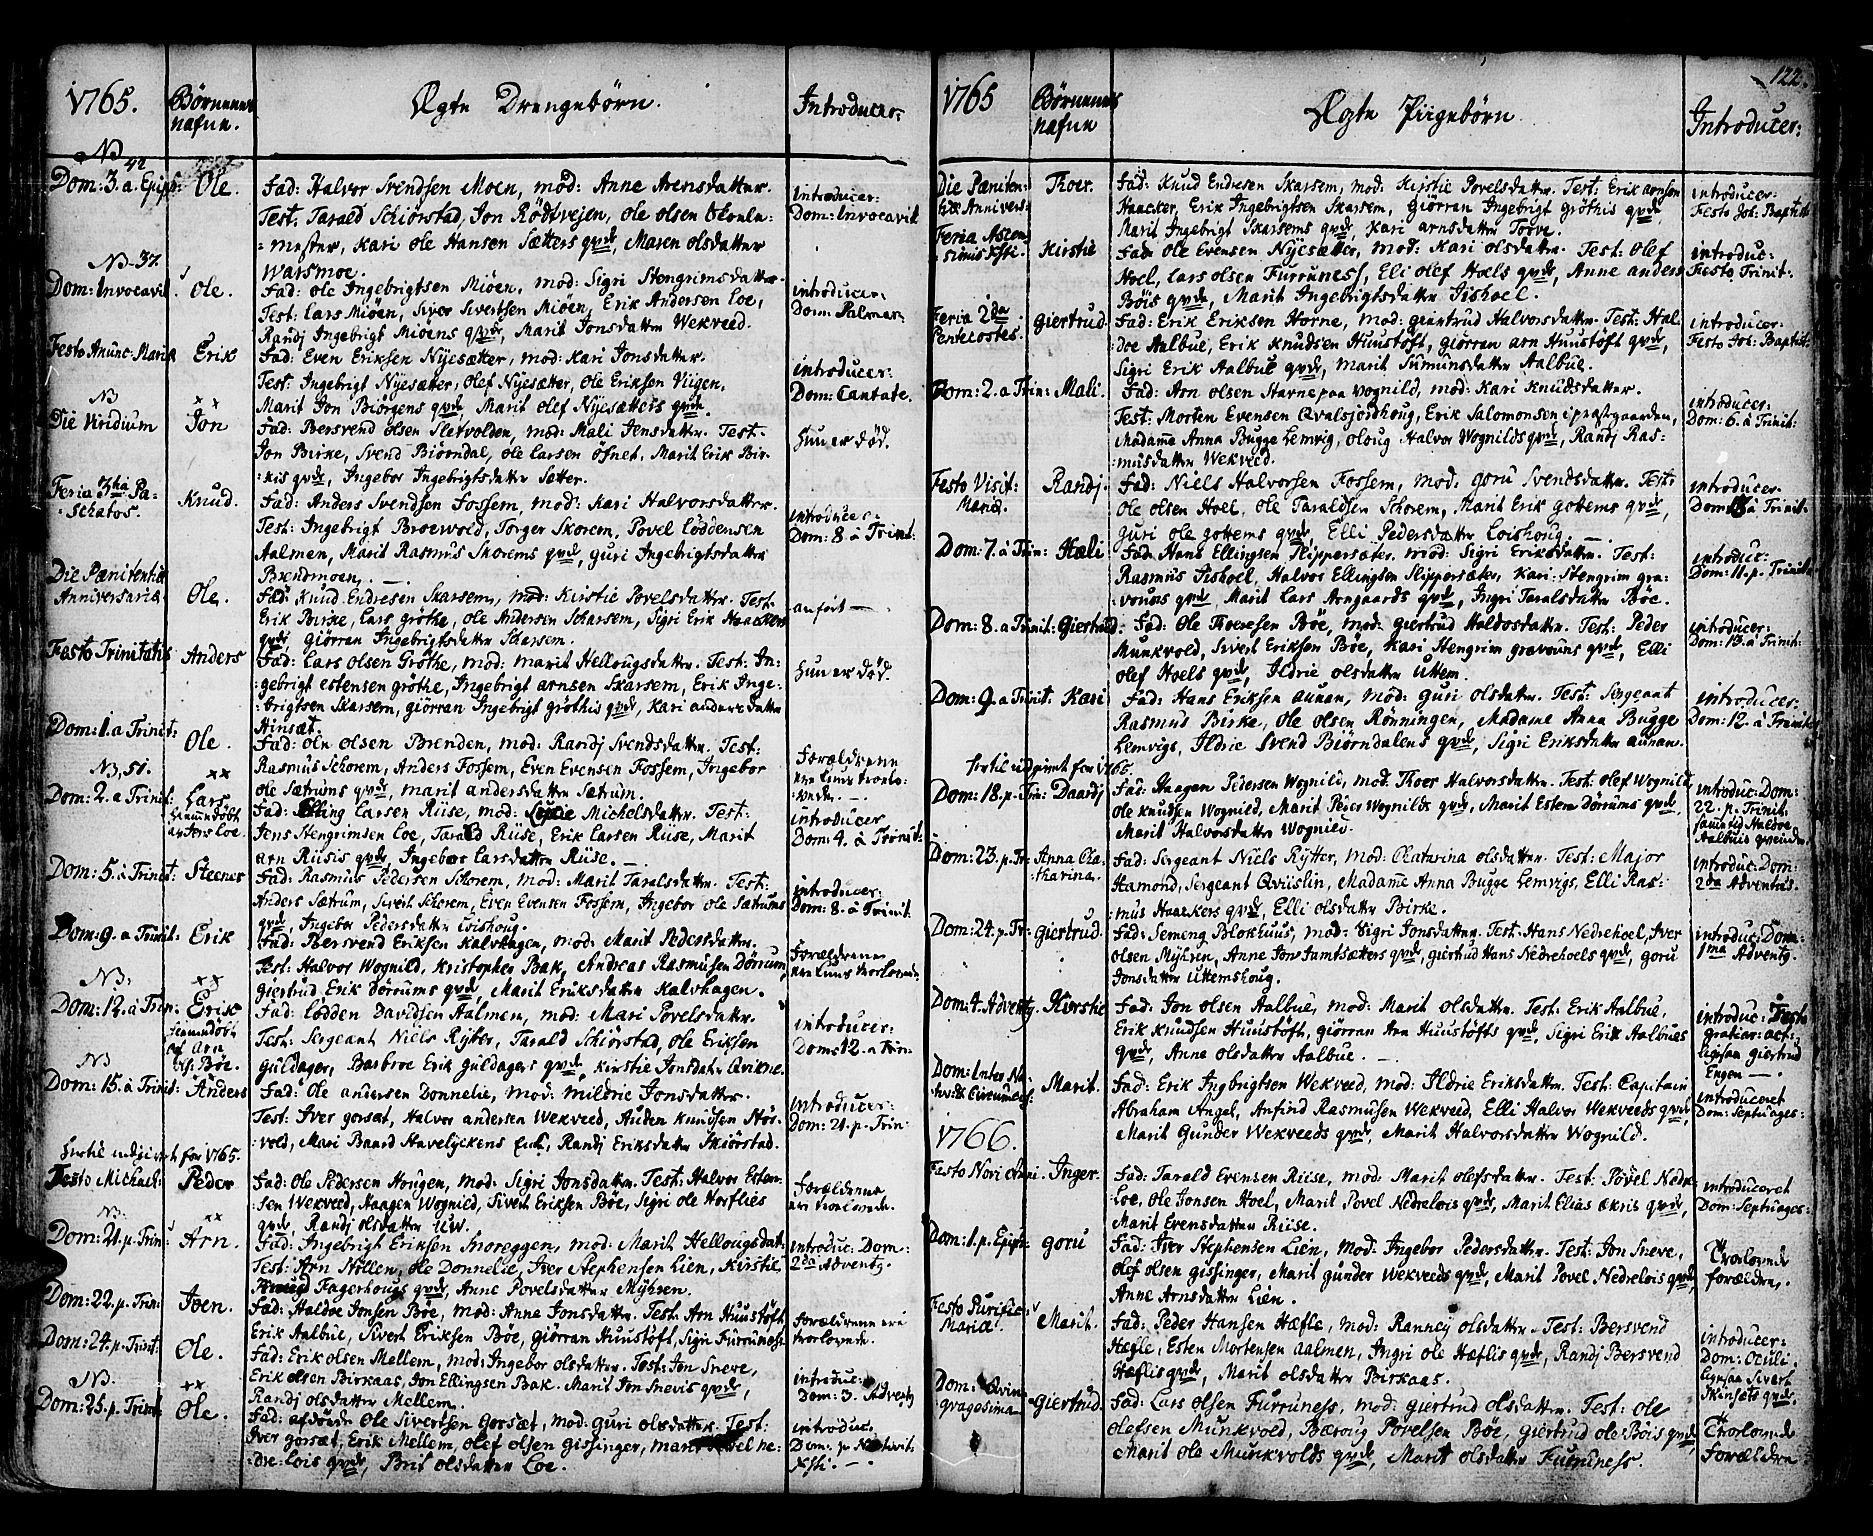 1765.
Børnenes
nafne.
Ægte Drengebørn.
Introducer:
N
42
Dom: 3. a. Epiph:
Ole.
Fad: Halvor Svendsen Moen, mod: Anne Arensdatter.
Test. Tarald Schiørstad, Jon Rödtvejen, Ole olsen
mester, Kari Ole Hansen Sætters qvde, Maren olsdatter
Warsmoe.
introducer:
Dom: Invocavit
N. 37.
Dom: Invocavit.
Ole.
Fad: Ole Ingebrigtsen Miøen, mod: Sigri Stengrimsdatter.
Test: Lars Miöen, Siver Sivertsen Miöen, Erik Andersen Loe,
Randj Ingebrigt Miöens qvde, Marit Jonsdatter Wekveed.
introducer:
Dom: Palmar:
Festo Anunc: Mariæ
Erik
Fad: Even Eriksen Nyesætter, mod: Kari Jonsdatter.
Test: Ingebrigt Nyesætter, Olef Nyesætter, Ole Eriksen Viigen,
Marit Jon Biörgens qvde, Marit olef Nyesætters qvde.
introducer:
Dom: Cantate.
N
Die Viridium
Jon
Fad: Bersvend olsen Sletvolden, mod: Mali Jensdatter. Test.
Jon Birke, Svend Biörndal, Ole Larsen Öfnet, Marit Erik Bir-
kis qvde, Ingebor Ingebrigtsdatter Sætter.
hun er död.
Feria 3tia Pa-
schatos.
Knud.
Fad: Anders Svendsen Fossem, mod: Kari Halvorsdatter.
Test: Ingebrigt Broevold, Torger Skorem, Povel Löddensen
Aalmen, Marit Rasmus Skorems qvde, Guri Ingebrigtsdatter
Brendmoen.
introducer:
Dom: 8. à Trinit:
Die Pænitentiæ
Anniversaria
Ole.
Fad: Knud Endresen Skarsem, mod: Kirstie Povelsdatter. Test.
Erik Birke, Lars Gröthe, Ole Andersen Scharsem, Sigri Erik Haackers
qvde, Giörran Ingebrigtsdatter Scharsem.
anfört —
Festo Trinitatis
Anders
Fad: Lars olsen Gröthe, mod: Marit Hellougsdatter. Test: In-
gebrigt Estensen Gröthe, Ingebrigt Arnsen Skarsem, Erik Inge-
brigtsen Skarsem, Giörran Ingebrigt Gröthis qvde, Kari Andersdatter
Hinsæt.
hun er död.
Dom: 1. a Trinit:
Ole.
Fad: Ole olsen Brenden, mod: Randj Svendsdatter. Test:
Rasmus Schorem, Anders Fossem, Even Evensen Fossem, Ingebor
Ole Sætrums qvde, Marit andersdatter Sætrum.
Forældrene
ere
N, 51.
Dom: 2. a Trinit:
Lars
hiemmedöbt
af Jens Loe.
Fad: Elling Larsen Riise, mod: Michelsdatter. Test:
Jens Stengrimsen Loe, Tarald Riise, Erik Larsen Riise, Marit
Arn Riisis qvde, Ingebor Larsdatter Riise.
introducer
Dom: 4. à Trinit:
Dom: 5. a Trinit:
Steener
Fad: Rasmus Pedersen Schorem, mod: Marit Taralsdatter. Test:
Anders Sætrum, Sivert Schorem, Even Evensen Fossem, Ingebor Ole Sætrums
qvde, Ingebor Pedersdatter Loishoug.
introducer:
Dom: 8. à Trinit.
Dom: 9. a Trinit:
Erik
Fad: Bersvend Eriksen Kalvhagen, mod: Marit Pedersdatter.
Test: Halvor Wognild, Kristopher Bak, Andreas Rasmusen Dörrum,
Giertrud Erik Dörrums qvde, Marit Eriksdatter Kalvhagen.
Forældrene
ere kuns trorlovede
N.
Dom: 12. à Trin:
Erik
hiemmedöbt
af Arn
Böe.
Fad: Lödden Davidsen Aalmen, mod: Mari Povelsdatter.
Test: Sergeant Niels Rytter, Tarald Schiörstad, Ole Eriksen
Guldager, Barbroe Erik Guldagers qvde, Kirstie Jonsdatter Qvikne.
introducer:
Dom: 12. a Trin:
N
Dom: 15. à Trinit:
Anders
Fad: Ole andersen Donnelie, mod: Mildrie Jonsdatter.
Test: Iver Gorsæt, Halvor andersen Wekveed, Auden Knudsen Nör-
vold, Mari Baard Havelyckens qvde, Randj Eriksdatter Skiörstad.
introducer:
Dom: 21. p. Trin:
hertil udgivet for 1765.
Festo Michael:
Peder
Fad: Ole Pedersen Hougen, mod: Sigri Jonsdatter. Test: Halvor Esten-
sen Wekveed, Haagen Wognild, Sivert Eriksen Böe, Sigri Ole Horflies
qvde, Randj olsdatter
Forældrene
ere trorlovede.
N.
Dom: 21. p. Trin:
Arn.
Fad: Ingebrigt Eriksen Snoreggen, mod: Marit Hellougsdat:
Test: Arn Stöllen, Ole Donnelie, Iver Stephensen Lien, Kirstie
Fagerhougs qvde, Anne Povelsdatter Myhren.
introduc: Dom:
2da Adventg.
Dom: 22. p. Trin:
Joen.
Fad: Haldoe Jonsen Böe, mod: Anne Jonsdatter. Test. Arn Huustöft
Erik Aalbue, Sivert Eriksen Böe, Giörran Huustöft, Sigri Furruness.
Forældrene ere
trorlovede.
Dom: 24. p. Trinit:
Ole.
Fad: Erik olsen Mellem, mod: Ingebor olsdatter. Test: Jon Sneve,
Erik olsen Birkaas, Jon Ellingsen Bak. Marit Jon Snevis qvde,
Randj olsdatter Mellem.
introduc:
Dom: 3. Adventg
N.
Dom: 25. p. Trinit
Ole.
Fad: afdöde Ole Sivertsen Gorsæt, mod: Guri olsdatter. Test:
Iver Gorsæt, Erik Mellem, Olef olsen Gissinger, Marit Povel Ne-
dre-Lois qvde, Brit olsdatter Loe.
introduc.
Dom: p. Nativit.
Xsti. —
122.
1765
Børnenes
nafne
Ægte Piigebørn
Introducer:
Die Pæniten-
tiæ Annivers:
Thoer.
Fad: Knud Endresen Skarsem, mod: Kirstie Povelsdatter. Test: Erik Arnsen
Haacker, Erik Ingebrigtsen Skarsem, Giörran Ingebrigt Gröthis qvde
Marit Ingebrigt Skarsems qvde, Kari Arnsdatter Torve.
introducer:
Festo Joh: Baptist
Feria Ascen-
sionis Xsti.
Kirstie
Fad: Ole Evensen Nyesætter, mod: Kari olsdatter. Test: Olef
Hoel, Lars olsen Furruness, Eli Olef Hoels qvde, Anne anders
Böis qvde, Marit Ingebrigtsdatter Fishoel.
introduc:
Festo Trinit:
Feria 2da
Pentecostes.
Giertrud
Fad: Erik Eriksen Horne, mod: Giertrud Halvorsdatter. Test: Hal-
doe Aalbue, Erik Knudsen Huustöft, Giörran Arn Huustöft qvde,
Sigri Erik Aalbue qvde, Marit Simunsdatter Aalbue.
introducer:
Festo Joh: Baptist:
Dom: 2. a Trin:
Mali.
Fad: Arn olsen Stavne paa Wognild, mod: Kari Knudsdatter.
Test: Morten Evensen Qvalsjordhoug, Erik Salomonsen i præstgaarden,
Madamme Anna Bugge Lemvig, Oloug Halvor Wognilds qvde, Randj Ras-
musdatter Wekveed.
introducer:
Dom: 6. à Trinit:
Festo Visit:
Mariæ.
Randj
Fad: Niels Halvorsen Fossem, mod: Goru Svendsdatter. Test:
Ole olsen Hoel, Ole Taraldsen Schorem, Marit Erik Gottems qvde,
Guri Ole Gottems qvde, Elli Pedersdatter Loishoug. —
introducer:
Dom: à Trinit:
Dom: 7. à Trin:
Hæli
Fad: Hans Ellingsen Slippersæter, mod: Sigri Eriksdatter. Test:
Rasmus Fishoel, Halvor Ellingsen Slippersæter, Kari Stengrim Gra-
vouns qvde, Marit Lars Arngaards qvde, Ingri Taralsdatter Böe.
introduc:
Dom: 11. p. Trinit:
Dom: 8. a Trinit:
Giertrud.
Fad: Ole Thoresen Böe, mod: Giertrud Haldosdatter. Test: Peder
Munkvold, Sivert Eriksen Böe, Kari Stengrim Gravouns qvde, Elli
Olef Hoels qvde, Ildrie olsdatter Uttem.
introducer:
Dom: 13. à Trinit:
Dom: 9. a Trinit.
Kari
Fad: Hans Eriksen Aunan, mod: Guri olsdatter. Test: Sergeant
Rasmus Birke, Ole olsen Rönningen, Madame Anna Bugge
Lemvigs, Ildrie Svend Biörndalens qvde, Sigri Eriksdatter Aunan.
introducer:
Dom: 12. à Trinit:
hertil udgivet for 1766.
Dom: 18. p. Trin:
Daardj
Fad: Haagen Pedersen Wognild, mod: Thoer Halvorsdatter. Test: Olef Wognild,
Ole Knudsen Wognild, Marit Peiers Wognilds qvde, Marit Esten Dörrums qvde,
Marit Halvorsdatter Wognild.
introduc: Dom:
22. p. Trinit.
samtid Haldoe
Aalbues qvinde
Dom: 23. p. Tr:
Anna Ca-
tharina.
Fad: Sergeant Niels Rytter, mod: Catarina olsdatter. Test: Major
Hamond, Sergeant Qviislin, Madame Anna Bugge Lemvigs, Elli Ras-
mus Haackers qvde, Elli olsdatter Birke.
introduc: Dom:
2da Adventus.
Dom: 24. p. Tr:
Giertrud.
Fad: Semeng Blokhuus, mod: Sigri Jonsdatter. Test: Hans Nedrehoel, Iver
olsen Myhren, Anne Jon Jamtsætters qvde, Giertrud Hans Nedrehoels qvde, Goru
Jonsdatter Uttemshoug.
introduc: Dom:
1ma Adventg.
Dom: 4. Adventg
Kirstie
Fad: Jon olsen Aalbue, mod: Marit olsdatter. Test: Erik Aalbue,
Erik Knudsen Huustöft, Giörran Arn Huustöfts qvde, Sigri Erik Aalbues
qvde, Anne olsdatter Aalbue. —
introduc: Festo
gratiar: act:
Ligesaa Giertrud
Engen —
Dom: Inter Na-
tiv: & Circumcis:
Marit.
Fad: Erik Ingebrigtsen Wekveed, mod: Ildrie Eriksdatter. Test: Capitain
Abraham Angel, Anfind Rasmusen Wekveed, Elli Halvor Wekveeds qvde,
Marit Gunder Wekveeds qvde, Marit Halvorsdatter Wognild.
introduceret
Dom: Septuages:
1766.
Festo Novi Anni.
Inger.
Fad: Tarald Evensen Riise, mod: Marit olefsdatter. Test: Povel Nedre-
Loe, Ole Jonsen Hoel, Marit Povel Nedrelois qvde, Marit Elias Ækris qvde,
Marit Evensdatter Riise.
introduceret
Dom: Septuages:
Dom: 1. p. Epiph:
Goru
Fad: Iver Stephensen Lien, mod: Ingebor Pedersdatter. Test: Jon Sneve,
Olef olsen Gissinger, Marit Gunder Wekveeds qvde, Marit Povel Nedrelois qvde,
Anne Arnsdatter Lien.
Trorlovede
forældre,
Festo Purific:
Mariæ.
Marit.
Fad: Peder Hansen Hæfle, mod: Ranney olsdatter. Test: Bersvend
Hæfle, Esten Mortensen Aalmen, Ingri Ole Hæflis qvde, Randj Bersvend
Hæflis qvde, Marit olsdatter Birkaas.
introducer:
Dom: Oculi.
Ligesaa Sivert
Skinsæts qvde.
Dom: Qvin-
qvagesima
Giertrud.
Fad: Lars olsen Furruness, mod: Giertrud olsdatter. Test: Ole
Olefsen Munkvold, Bæroug Povelsen Böe, Giertrud Ole Böis qvde
Marit Ole Munkvolds qvde, Marit olsdatter Furruness.
Trorlovede
forældre